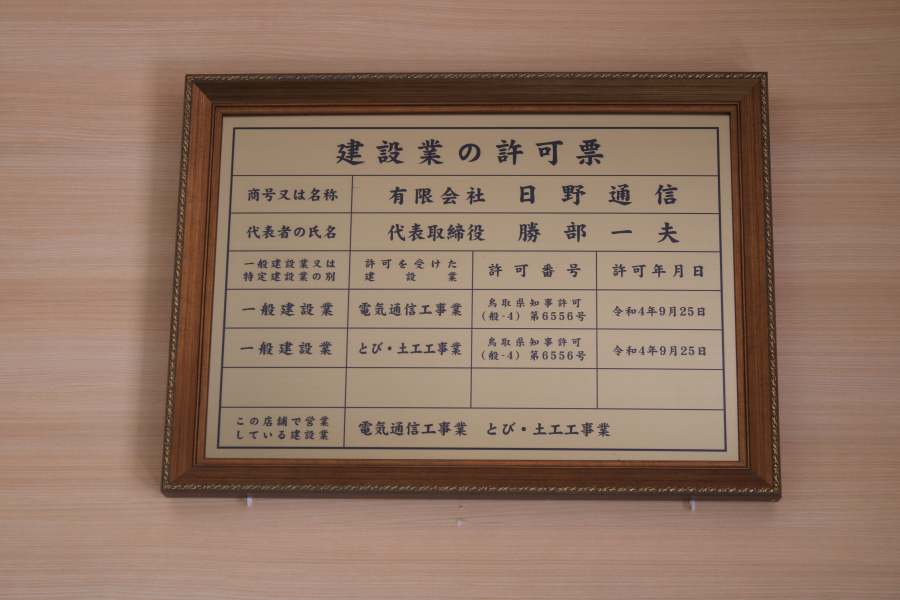 建設業の許可票
商号又は名称 有限会社 日野通信
代表者の氏名 代表取締役 勝部一夫
一般建設業又は 許可を受けた 許可番号 許可年月日
特定建設業の別 建設業
一般建設業 電気通信工事業 鳥取県知事許可 令和4年9月25日
(般-4) 第6556号
一般建設業 とび・土工工事業 鳥取県知事許可 令和4年9月25日
(般-4) 第6556号
この店舗で営業 電気通信工事業 とび・土工工事業
している建設業